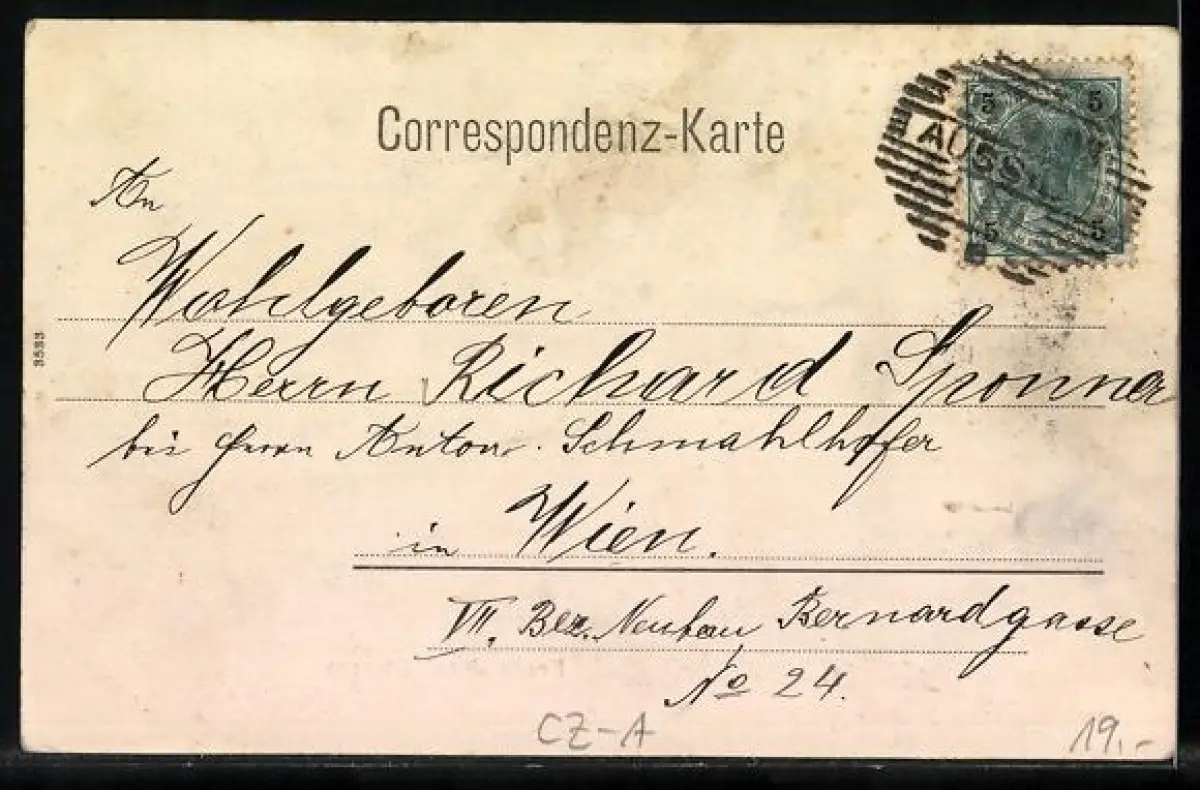 Correspondenz-Karte
5 5
AUSS
5 5
An
Wohlgeboren
Herrn Richard Sponner
bei Herrn Anton Schmahlhofer
in Wien.
VII. Bez. Neubau Bernardgasse
No 24.
3533
CZ-A
19.-